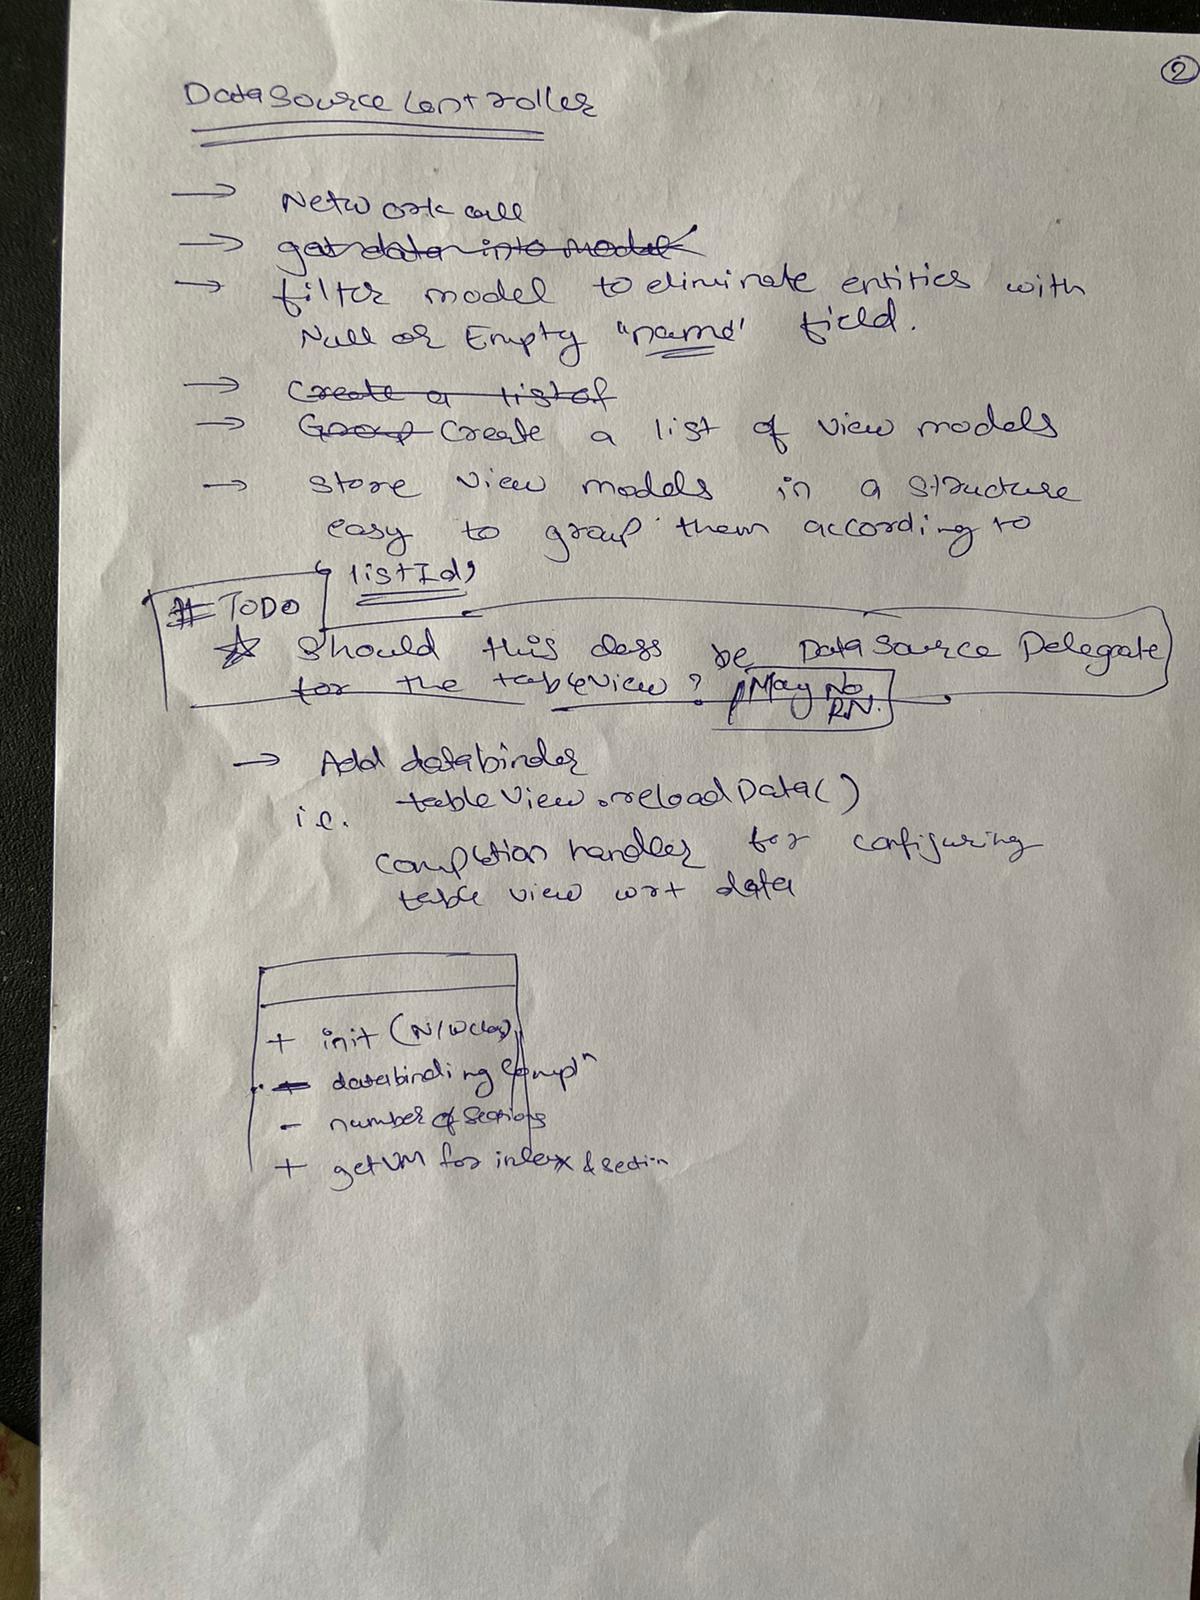 ②
DataSource Controller
→ Network call
→ get data into model
→ filter model to eliminate entities with
Null or Empty "name" field.
→ Create a list of
→ Group Create a list of view models
→ store view models in a structure
easy to group them according to
listId,
# TODO
☆ Should this class be DataSource Delegate
for the tableView? May No,
RN.
→ Add databinder
i.e. tableView.reloadData()
completion handler for configuring
table view wrt data
+ init (N/W class)
databinding Compⁿ
- number of sections
+ getVM for index & section